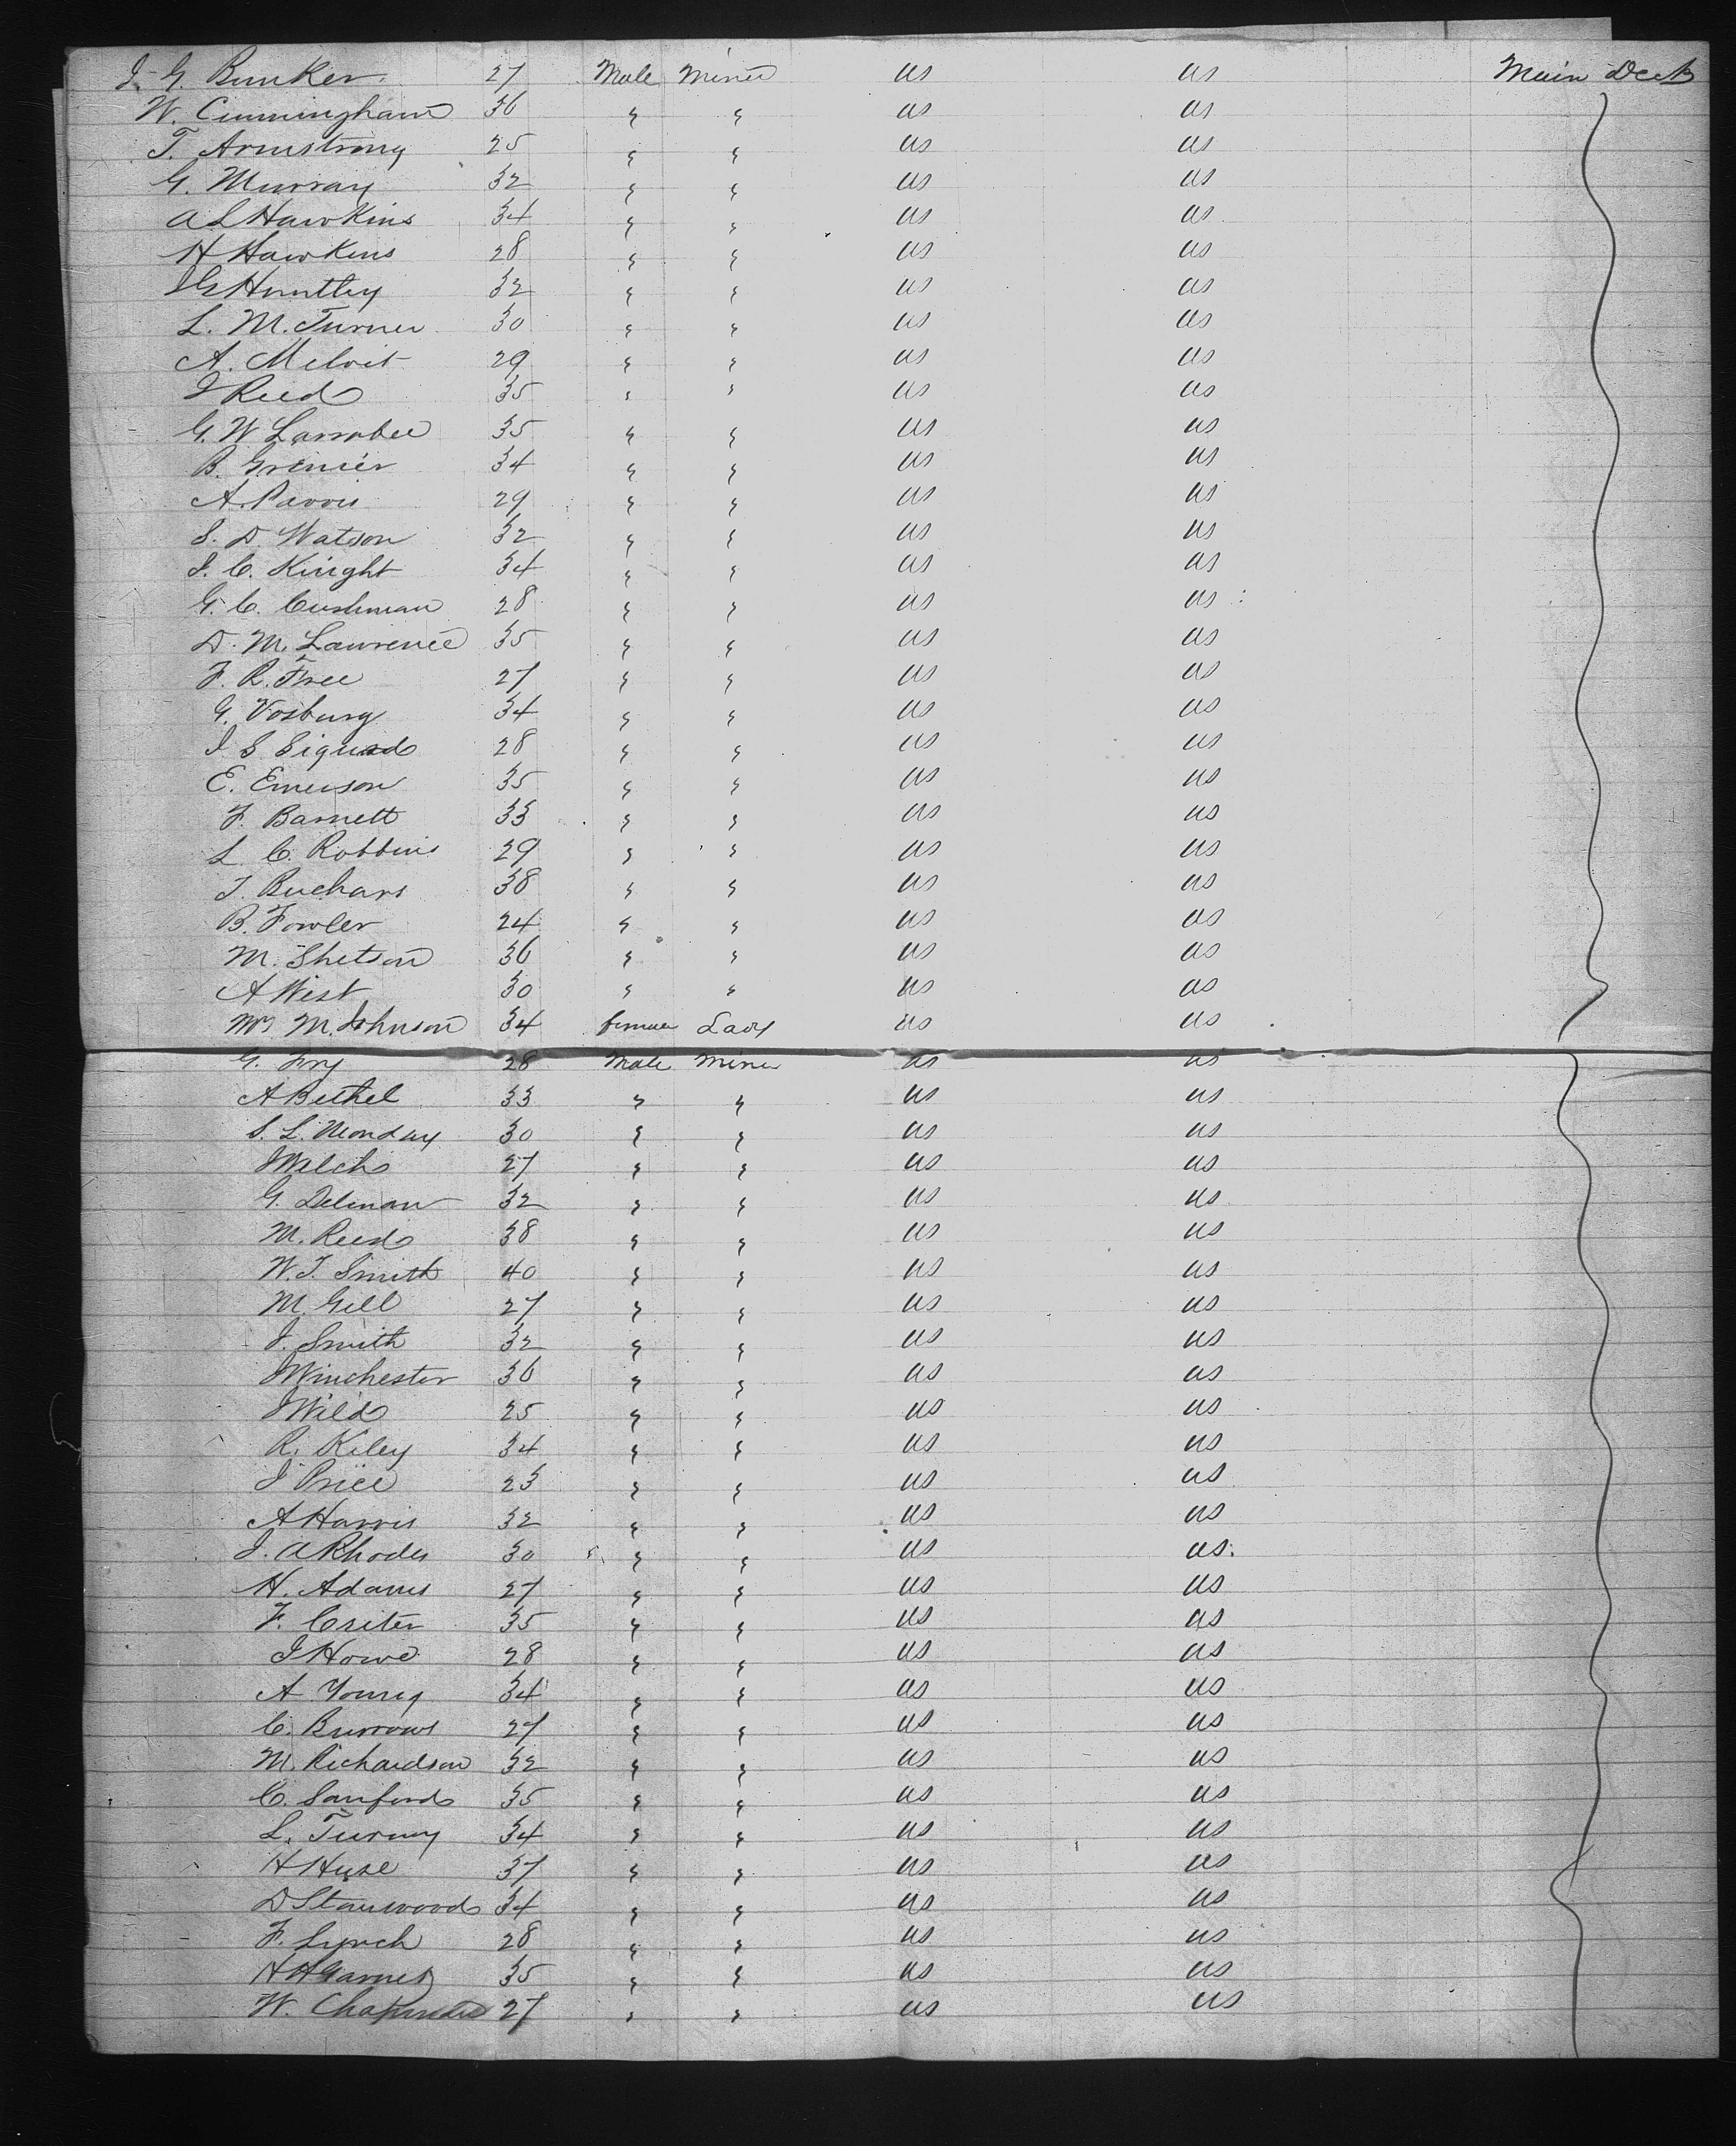 J. G. Bunker 27 Male Miner US US Main Deck
W. Cunningham 36 " " US US
T. Armstrong 25 " " US US
G. Murray 32 " " US US
A L Hawkins 34 " " US US
H Hawkins 28 " " US US
J G Huntley 32 " " US US
L. M. Turner 30 " " US US
A. 29 " " US US
J Reed 35 " " US US
G. W Larrabee 35 " " US US
B. Grenier 34 " " US US
A. 29 " " US US
S. D. Watson 32 " " US US
J. C. Knight 34 " " US US
G. C. Cushman 28 " " US US
D. M. Lawrence 35 " " US US
F. R. Free 27 " " US US
G. Vosburg 34 " " US US
J S 28 " " US US
E. Emerson 35 " " US US
F. Barnett 33 " " US US
L C. Robbins 29 " " US US
T. 38 " " US US
B. Fowler 24 " " US US
M. Shetson 36 " " US US
A West 30 " " US US
Mrs M. Johnson 34 female Lady US US
G. Fry 28 Male Miner US US
A Bethel 33 " " US US
S. L. Monday 30 " " US US
J Welch 27 " " US US
G. Delman 32 " " US US
M. Reed 38 " " US US
W. T. Smith 40 " " US US
M. Gill 27 " " US US
J. Smith 32 " " US US
J Winchester 36 " " US US
J Wild 25 " " US US
R. Kiley 34 " " US US
J Price 23 " " US US
A Harris 32 " " US US
J. A Rhodes 30 " " US US
H. Adams 27 " " US US
F. Criter 35 " " US US
J Howe 28 " " US US
A Young 34 " " US US
C. Burrows 27 " " US US
M. Richardson 32 " " US US
C. Sanford 35 " " US US
L. Turney 34 " " US US
H Huse 37 " " US US
D Stanwood 34 " " US US
F. Lynch 28 " " US US
H H Garnes 35 " " US US
W. 27 " " US US